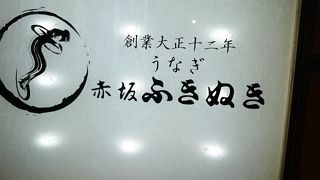 創業大正十二年
うなぎ
赤坂ふきぬき